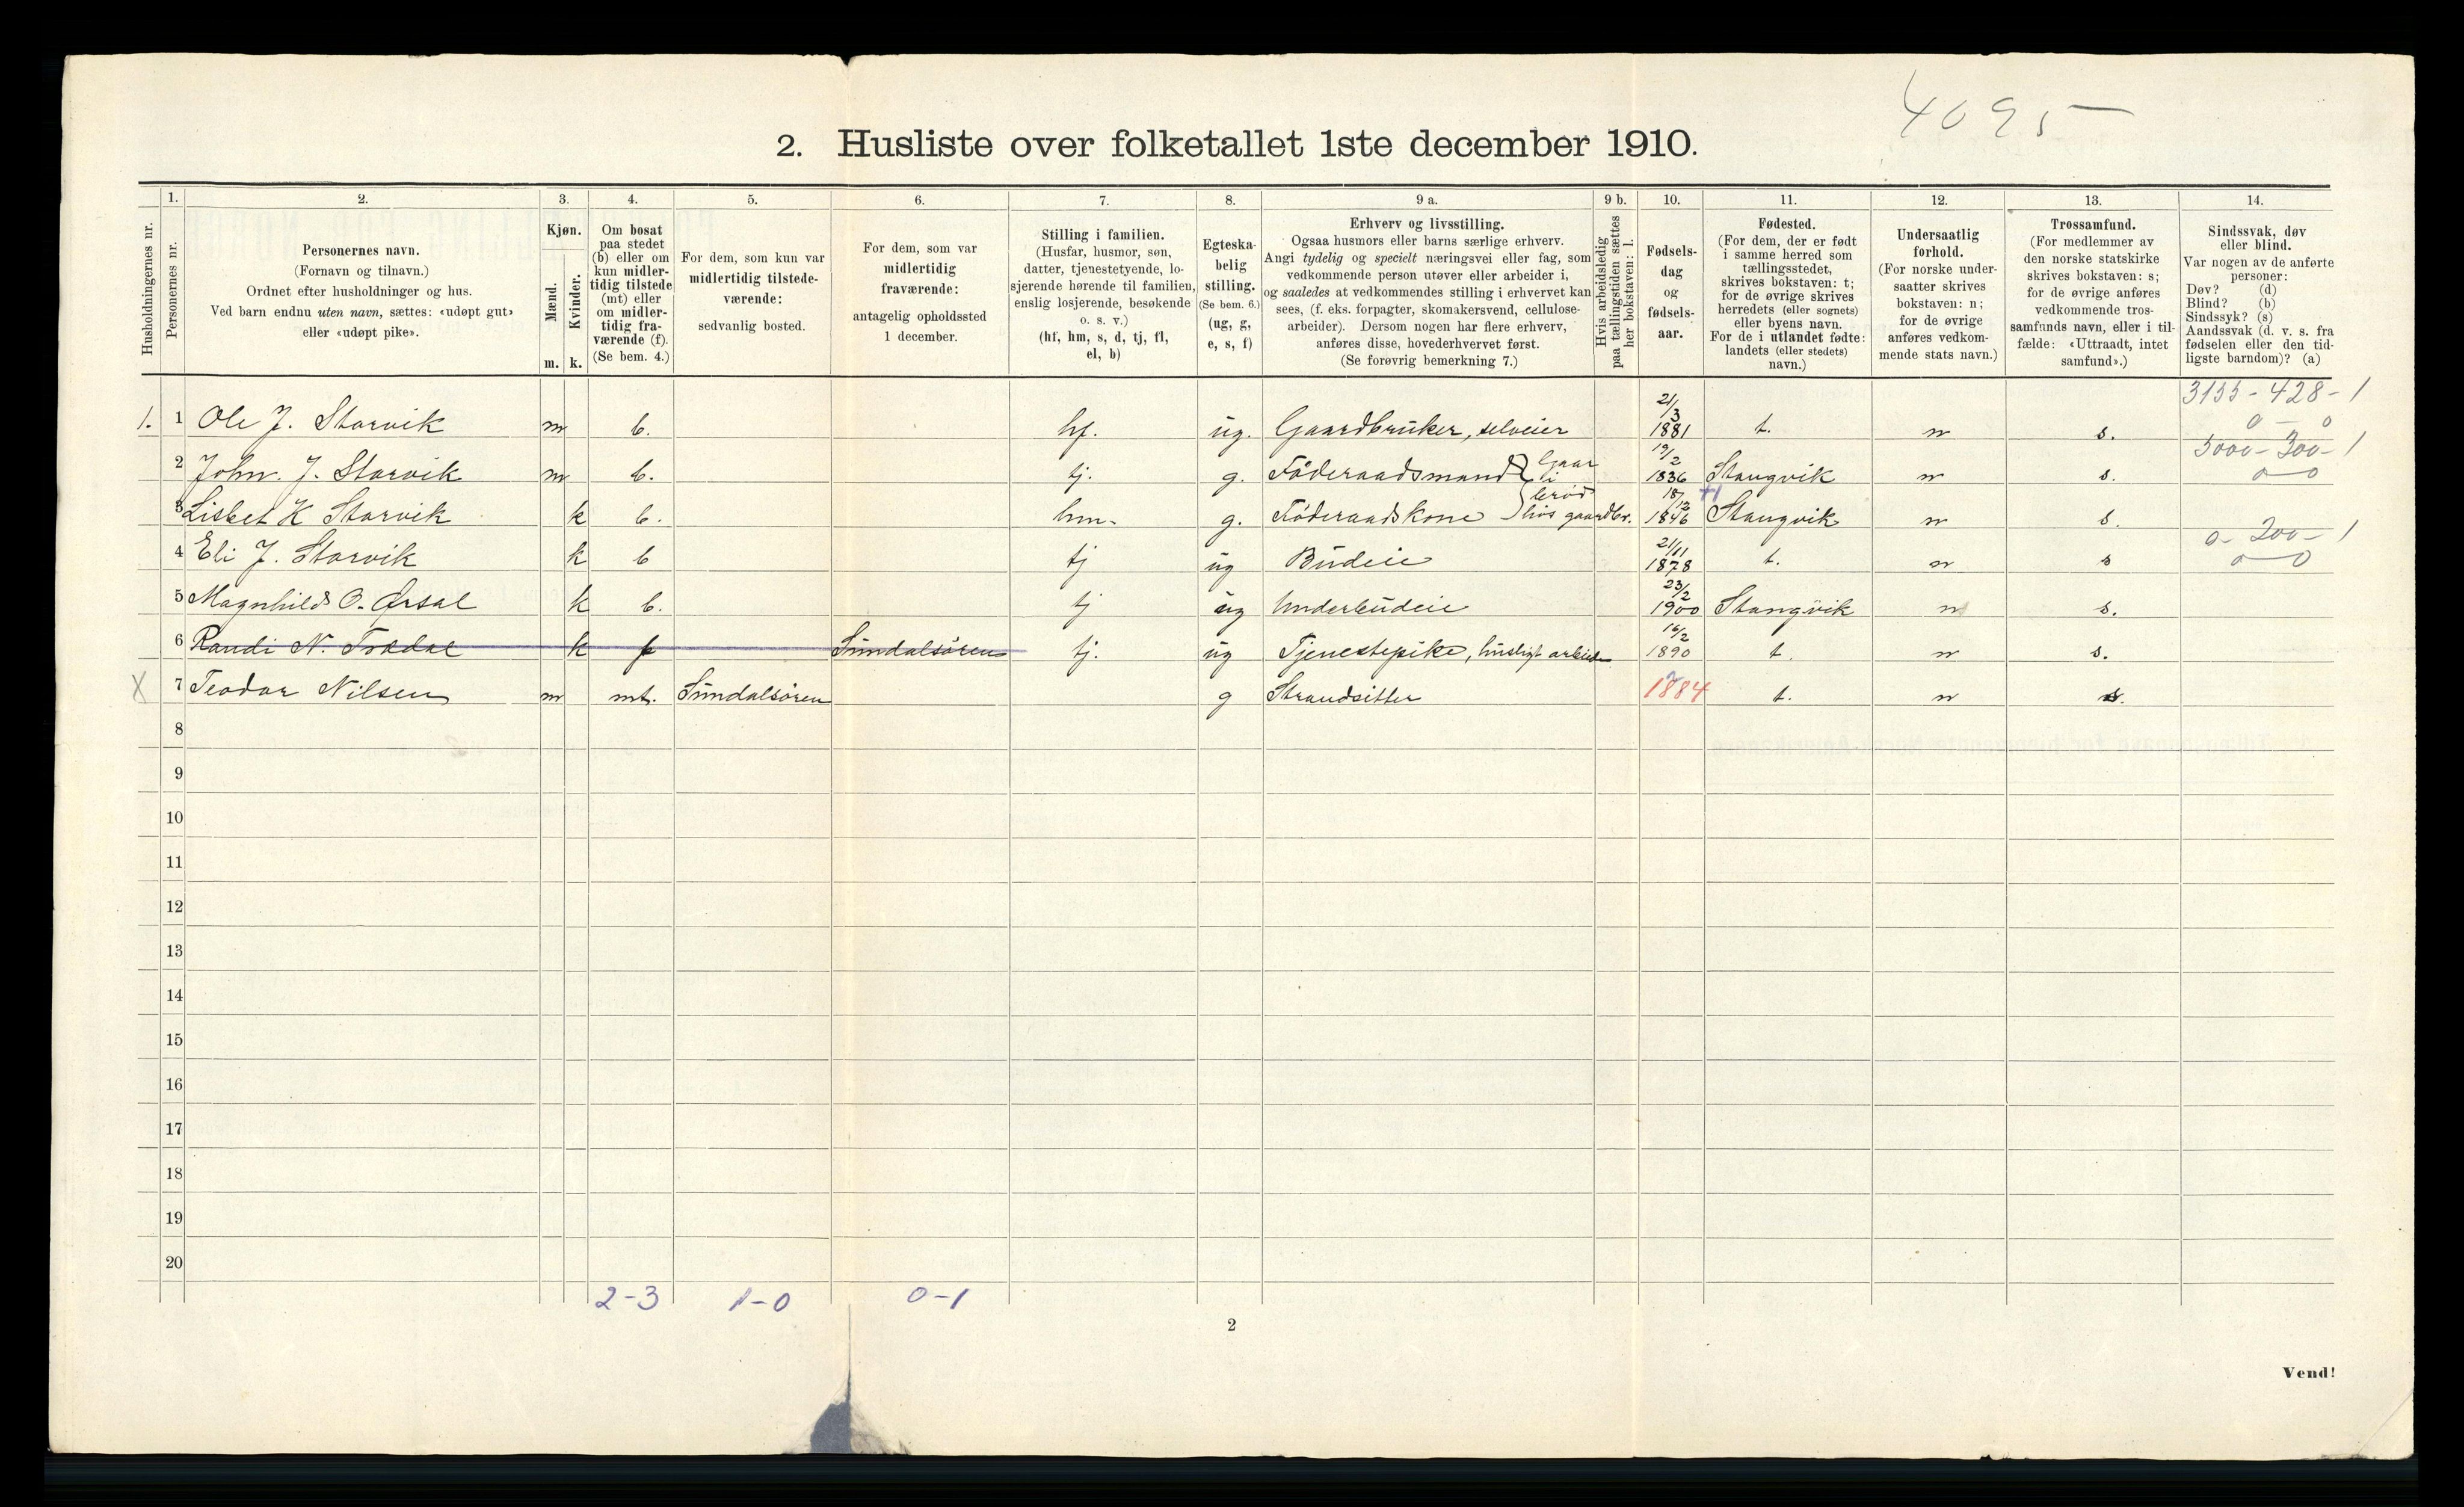 4095
2. Husliste over folketallet 1ste december 1910.
Husholdningernes nr.
1.
Personernes nr.
2.
Personernes navn.
(Fornavn og tilnavn.)
Ordnet efter husholdninger og hus.
Ved barn endnu uten navn, sættes: «udøpt gut»
eller «udøpt pike».
3.
Kjøn.
Mænd.
Kvinder.
m. k.
4.
Om bosat
paa stedet
(b) eller om
kun midler-
tidig tilstede
(mt) eller
om midler-
tidig fra-
værende (f).
(Se bem. 4.)
5.
For dem, som kun var
midlertidig tilstede-
værende:
sedvanlig bosted.
6.
For dem, som var
midlertidig
fraværende:
antagelig opholdssted
1 december.
7.
Stilling i familien.
(Husfar, husmor, søn,
datter, tjenestetyende, lo-
sjerende hørende til familien,
enslig losjerende, besøkende
o. s. v.)
(hf, hm, s, d, tj, fl,
el, b)
8.
Egteska-
belig
stilling.
(Se bem. 6.)
(ug, g,
e, s, f)
9 a.
Erhverv og livsstilling.
Ogsaa husmors eller barns særlige erhverv.
Angi tydelig og specielt næringsvei eller fag, som
vedkommende person utøver eller arbeider i,
og saaledes at vedkommendes stilling i erhvervet kan
sees, (f. eks. forpagter, skomakersvend, cellulose-
arbeider). Dersom nogen har flere erhverv,
anføres disse, hovederhvervet først.
(Se forøvrig bemerkning 7.)
9 b.
Hvis arbeidsledig
paa tællingstiden sættes
her bokstaven: l.
10.
Fødsels-
dag
og
fødsels-
aar.
11.
Fødested.
(For dem, der er født
i samme herred som
tællingsstedet,
skrives bokstaven: t;
for de øvrige skrives
herredets (eller sognets)
eller byens navn.
For de i utlandet fødte:
landets (eller stedets)
navn.)
12.
Undersaatlig
forhold.
(For norske under-
saatter skrives
bokstaven: n;
for de øvrige
anføres vedkom-
mende stats navn.)
13.
Trossamfund.
(For medlemmer av
den norske statskirke
skrives bokstaven: s;
for de øvrige anføres
vedkommende tros-
samfunds navn, eller i til-
fælde: «Uttraadt, intet
samfund».)
14.
Sindssvak, døv
eller blind.
Var nogen av de anførte
personer:
Døv? (d)
Blind? (b)
Sindssyk? (s)
Aandssvak (d. v. s. fra
fødselen eller den tid-
ligste barndom)? (a)
1. 1 Ole J. Storvik m b. hf. ug. Gaardbruker, selveier 21/3 1881 t. n s. 3155-428-1
0 - 0
2 John. J. Storvik m b. tj. g. Föderaadsmand 19/2 1836 Stangvik n s. 3000-300-1
0-0
3 Lisbet K Storvik k b. hm. g. Föderaadskone hos gaardbr. 18/12 1846 Stangvik n s.
4 Eli J. Storvik k b tj ug Budeie 21/11 1878 t. n s 0-200-1
0-0
5 Magnhild O. Ørsal k b. tj ug Underbudeie 23/2 1900 Stangvik n s.
6 Randi N. k f Sundalsören tj. ug Tjenestepike, husligt arbeide 16/2 1890 t. n s.
X 7 Teodor Nilsen m mt. Sundalsören g Strandsitter 1884 t. n s.
8
9
10
11
12
13
14
15
16
17
18
19
20
2-3 1-0 0-1
2
Vend!